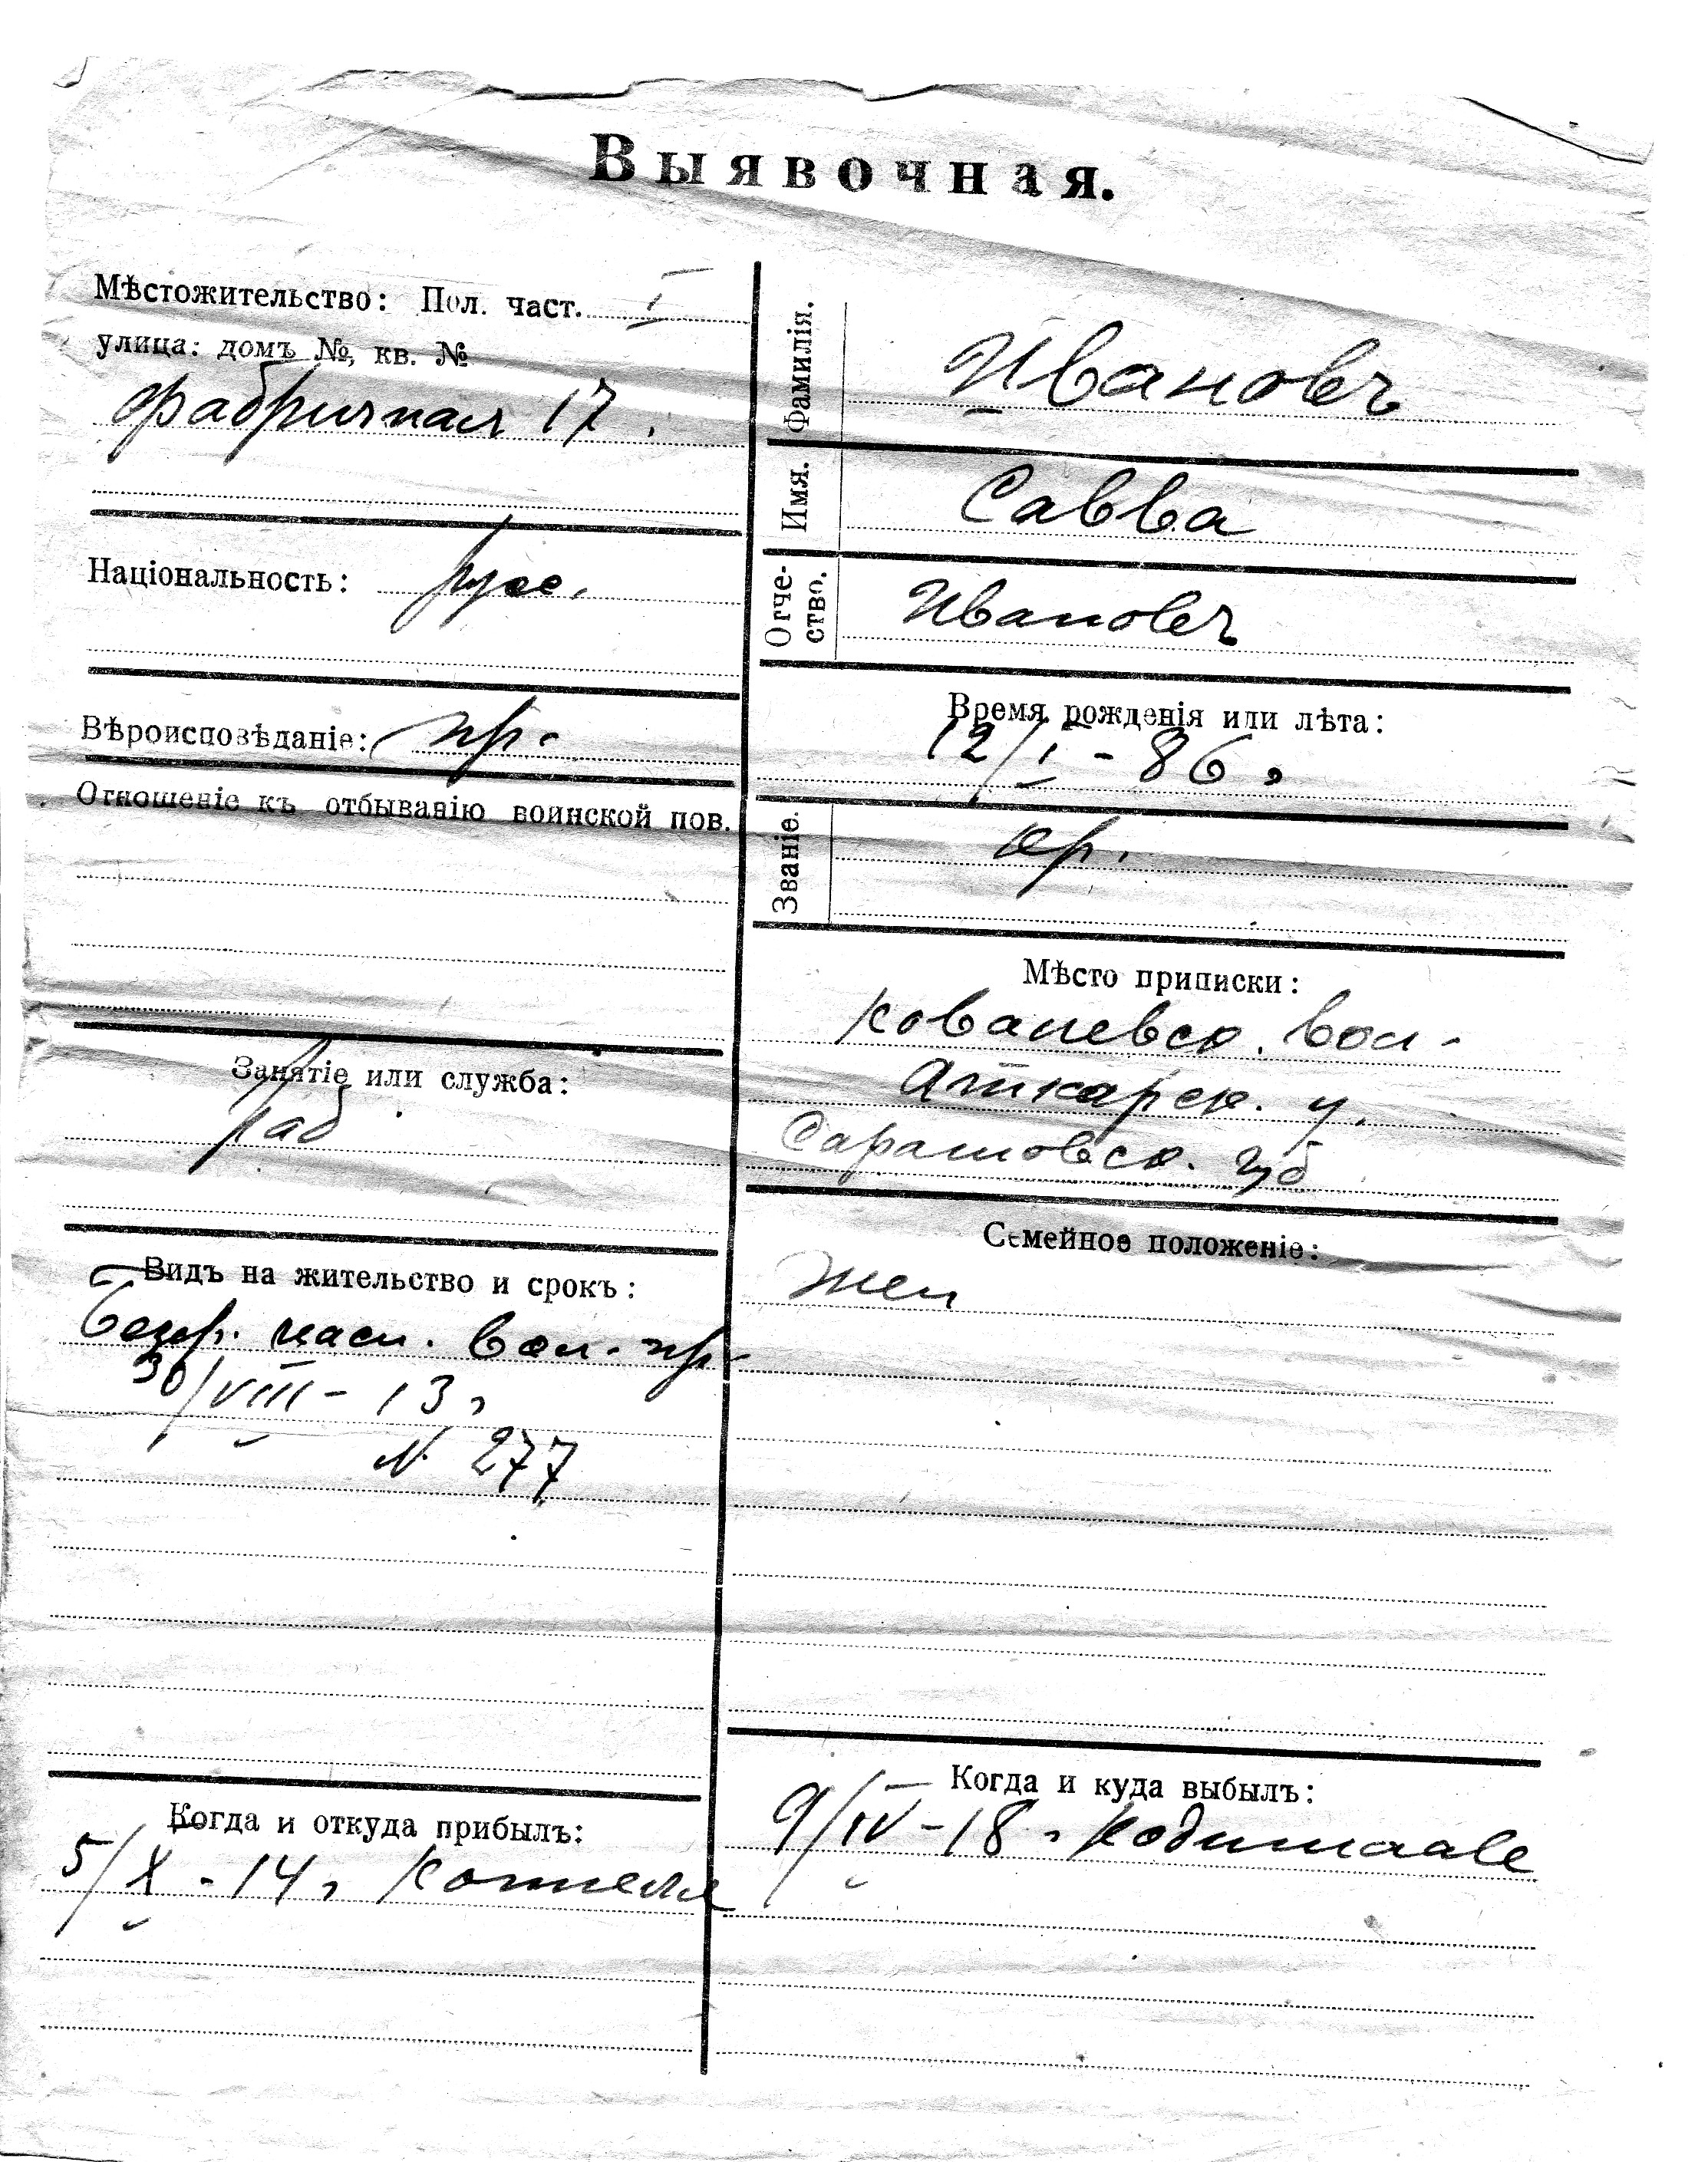 Выявочная.
Мѣстожительство: Пол. част. I
улица: домъ №, кв. №
Фабричная 17.
Національность: рус.
Вѣроисповѣданіе: пр.
Отношеніе къ отбыванію воинской пов.
Занятіе или служба:
раб
Видъ на жительство и срокъ:
Безср. пасп. вол. пр
30/VIII - 13,
N. 277
Когда и откуда прибылъ:
5/X - 14,
Фамилія. Ивановъ
Имя. Савва
Отче-
ство. Ивановъ
Время рожденія или лѣта:
12/I - 86,
Званіе. кр.
Мѣсто приписки:
вол.
Аткарск. у.
Саратовск. губ
Семейное положеніе:
жен
Когда и куда выбылъ:
9/IV - 18,